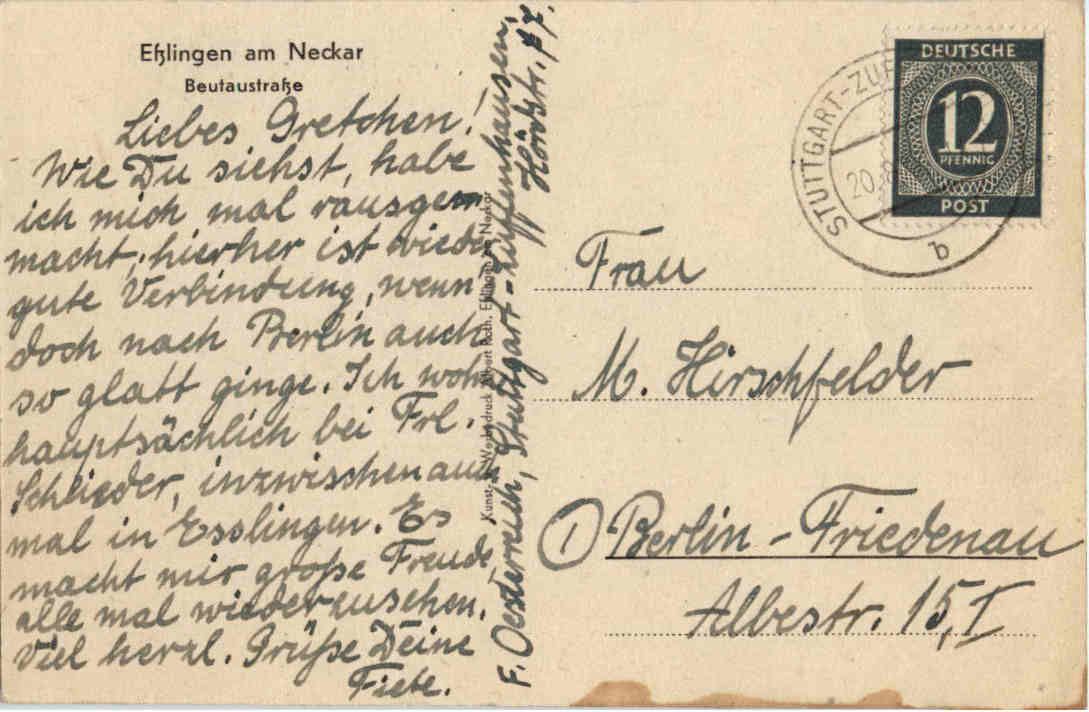 Eßlingen am Neckar
Beutaustraße
Liebes Gretchen!
Wie Du siehst, habe
ich mich mal rausge-
macht, hierher ist wieder
gute Verbindung, wenn
doch nach Berlin auch
so glatt ginge. Ich wohn
hauptsächlich bei Frl.
Schlieder, inzwischen auch
mal in Esslingen. Es
macht mir große Freude
alle mal wiederzusehen.
Viel herzl. Grüße Deine
Fiete.
Kunst- Werbedruck Albert Roth, Eßlingen am Neckar
F. Oesterreich, Stuttgart-Zuffenhausen,
STUTTGART-ZUF
20.8
b
DEUTSCHE
12
PFENNIG
POST
Frau
M. Hirschfelder
1 Berlin-Friedenau
Albestr. 15, I